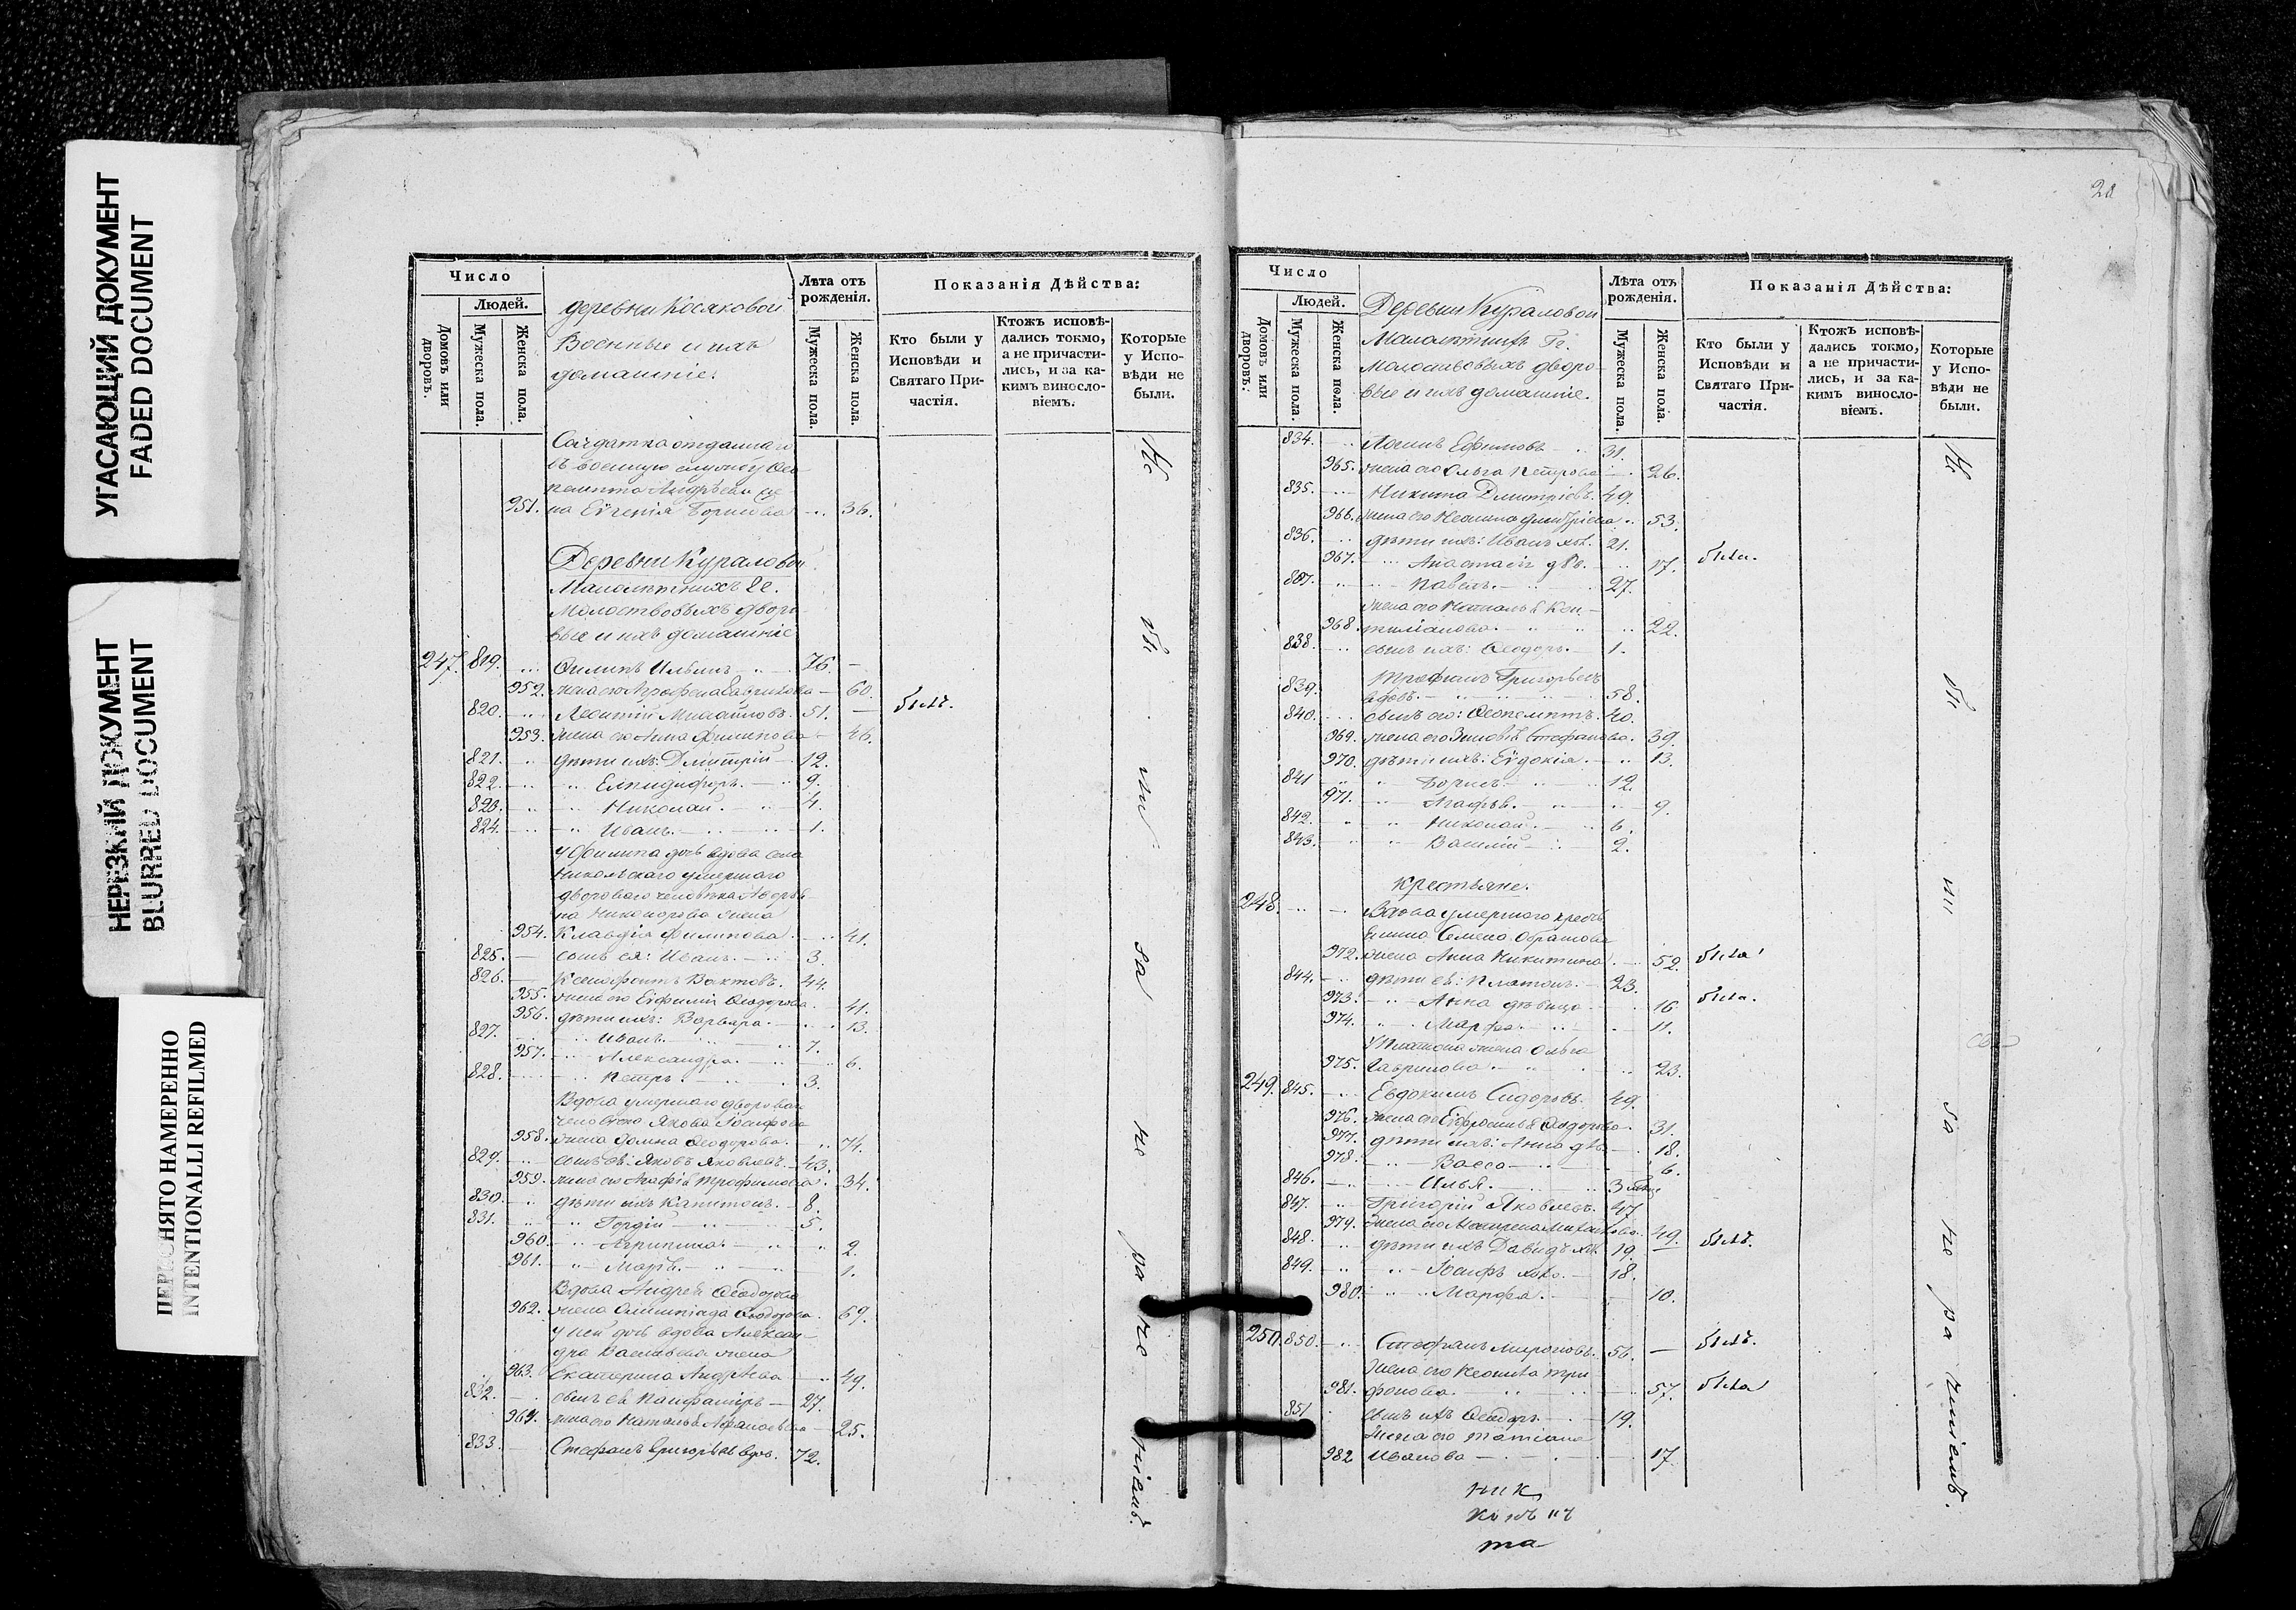 УГАСАЮЩИЙ ДОКУМЕНТ
FADED DOCUMENT
НЕРЕЗКИЙ ДОКУМЕНТ
BLURRED DOCUMENT
ПЕРЕСНЯТО НАМЕРЕННО
INTENTIONALLI REFILMED
Число
Людей.
Домовъ или дворовъ.
Мужеска пола.
Женска пола.
деревни Косяковой
Военные и ихъ
домашніе.
Лѣта отъ рожденія.
Мужеска пола.
Женска пола.
Показанія Дѣйства:
Кто были у Исповѣди и Святаго Причастія.
Ктожъ исповѣдались токмо, а не причастились, и за какимъ винословіемъ.
Которые у Исповѣди не были.
Солдатка отданнаго
въ военную службу Ѳео
пемпта Андрѣева же
951. на Еѵгенія Борисова 36.
Деревни Кураловой
Малолѣтнихъ Гг.
Молоствовыхъ дворо
вые и ихъ домашніе
247. 819. Филипъ Ильинъ 76.
952. жена его Агрофена Гаврилова 60.
820. Леонтій Михайловъ. 51. былъ.
953. жена его Анна Филипова 46.
821. дѣти ихъ: Дмитрій 12.
822. Елпидифоръ. 9.
823. Николай. 4.
824. Иванъ. 1.
у Филипа дочь вдова села
Никольскаго умершаго
двороваго человѣка Андрѣя
Никонорова жена
954. Клавдія Филипова 41.
825. сынъ ея: Иванъ. 3.
826. Ксенофонтъ Вактовъ. 44.
955. жена его Еѵфимія Ѳеодорова. 41.
956. дѣти ихъ: Варвара. 13.
827. Иванъ. 7.
957. Александра. 6.
828. Петръ. 3.
Вдова умершаго двороваго
человѣка Якова Іосифова
958. жена Домна Ѳеодорова. 74.
829. сынъ ея: Яковъ Яковлевъ. 43.
959. жена его Агафія Трофимова. 34.
830. дѣти ихъ Капитонъ. 8.
831. Гордій 5.
960. Агрипина. 2.
961. Марія. 1.
Вдова Андрей Ѳеодорова
962. жена Олимпіада Ѳеодорова. 69.
у ней дочь вдова Алексан
дра Васильева жена
963. Екатерина Андрѣева 49.
832. сынъ ея Панфамиръ 27.
964. жена его Наталья Афанасьева 25.
833. Стефанъ Григорьевъ вдов. 72.
Не бы ли за не ра че ніемъ.
28
Число
Людей.
Домовъ или дворовъ.
Мужеска пола.
Женска пола.
Деревни Кураловой
Малолѣтнихъ Гг.
Молоствовыхъ дворо
вые и ихъ домашніе.
Лѣта отъ рожденія.
Мужеска пола.
Женска пола.
Показанія Дѣйства:
Кто были у Исповѣди и Святаго Причастія.
Ктожъ исповѣдались токмо, а не причастились, и за какимъ винословіемъ.
Которые у Исповѣди не были.
834. Логинъ Ефимовъ 31.
965. жена его Ольга Петрова 26.
835. Никита Дмитріевъ. 49.
966. жена его Неонила Дмитріева 53.
836. дѣти ихъ: Иванъ хол. 21.
967. Анастасія дѣв. 17. была.
837. Павелъ. 27.
жена его Наталья Кен
968. тиліанова. 22.
838. сынъ ихъ: Ѳеодоръ. 1.
Трофимъ Григорьевъ
839. вдовъ. 58.
840. сынъ его: Ѳеопемптъ. 40.
969. жена его Зиновія Стефанова. 39.
970. дѣти ихъ: Еѵдокія. 13.
841 Борисъ. 12.
971. Агафья. 9.
842. Николай. 6.
843. Василій 2.
Крестьяне.
248. Вдова умершаго кресть
янина Семена Абрамова
972. жена Анна Никитина. 52. была
844. дѣти ея: Платонъ. 23.
973. Анна дѣвица 16 была.
974. Марфа. 11.
У Платона жена Ольга
975. Гаврилова. 23.
249. 845. Евдокимъ Сидоровъ. 49.
976. жена его Еѵфросинья Ѳеодорова. 31.
977. дѣти ихъ: Анна дѣв. 18.
978. Васса 6.
846. Илья. 3 мѣс
847. Григорій Яковлевъ. 47
979. жена его Макрена Михайлова. 49.
848. дѣти ихъ Давидъ хол. 19. былъ.
849. Іосифъ хол. 18.
980. Марфа. 10.
250. 850. Стефанъ Мироновъ. 56. былъ.
жена его Неонила Три
981. фонова. 57. была
851 сынъ ихъ Ѳеодоръ 19.
Жена его Татіана
982 Иванова 17
Не бы ли за не ра чиніемъ.
ник
та